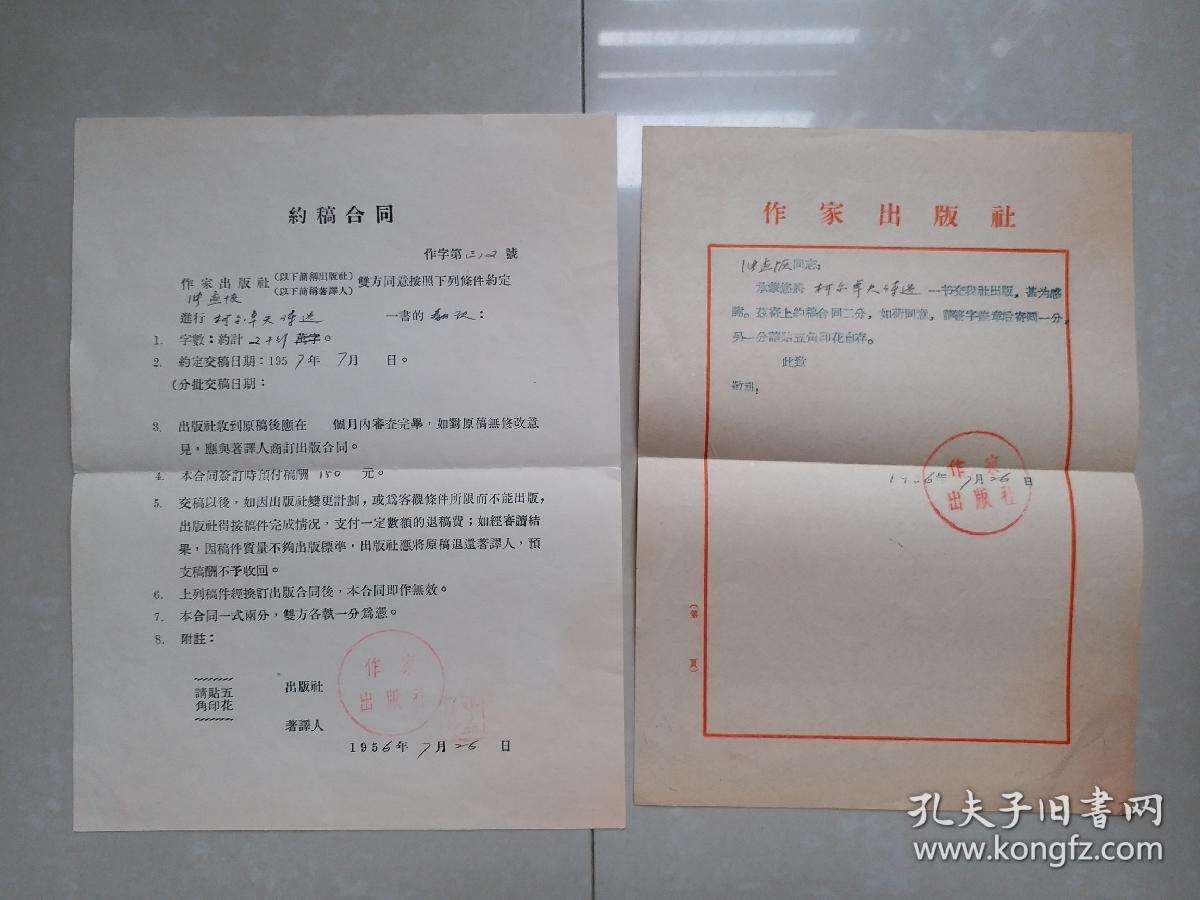 約稿合同
作字第 號
作家出版社(以下簡稱出版社)
(以下簡稱著譯人)雙方同意按照下列條件約定
孟恢
進行 柯尔卓夫诗选 一書的 翻译:
1. 字數:約計 萬字。
2. 約定交稿日期:1957年 7月 日。
(分批交稿日期:
3. 出版社收到原稿後應在 個月內審查完畢,如對原稿無修改意
見,應與著譯人商訂出版合同。
4. 本合同簽訂時預付稿酬 150 元。
5. 交稿以後,如因出版社變更計劃,或爲客觀條件所限而不能出版,
出版社得按稿件完成情况,支付一定數額的退稿費;如經審讀結
果,因稿件質量不夠出版標準,出版社應將原稿退還著譯人,預
支稿酬不予收回。
6. 上列稿件經換訂出版合同後,本合同即作無效。
7. 本合同一式兩分,雙方各執一分爲憑。
8. 附註:
請貼五
角印花
出版社
作家
出版社
著譯人
1956年 7月 26 日
作家出版社
孟恢同志:
承蒙您將 柯尔卓夫诗选 一书交我社出版,甚为感
謝。茲寄上約稿合同二分,如荷同意,請签字盖章后寄回一分,
另一分請貼五角印花自存。
此致
敬礼!
作家
出版社
1956年 7月 26 日
(第 頁)
孔夫子旧书网
www.kongfz.com